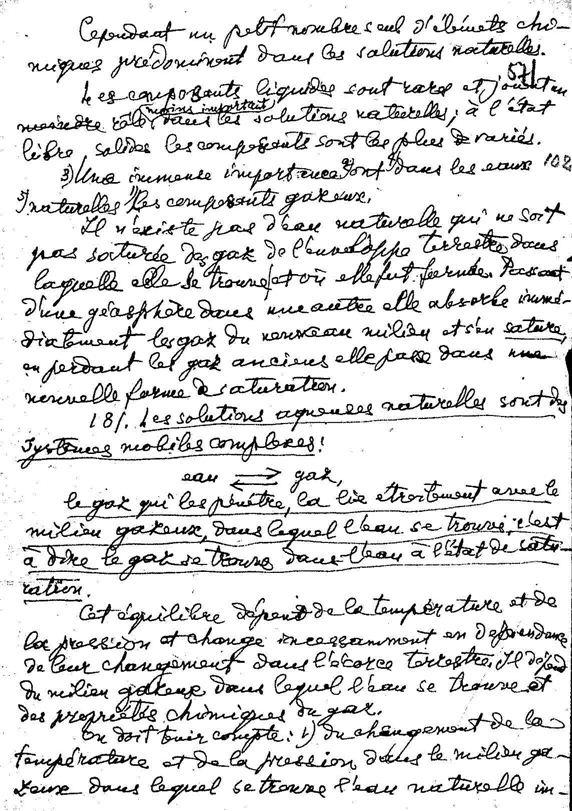 Cependant un petit nombre seul d'éléments chi-
miques prédominent dans les solutions naturelles.
571
Les composants liquides sont rares et jouent un
moindre rôle (moins important) dans les solutions naturelles; à l'état
libre, solides les composants sont les plus variés.
3) Une immense importence 2) ont 4) dans les eaux 102
5) naturelles 1) les composants gazeux.
Il n'existe pas d'eau naturelle qui ne soit
pas saturée des gaz de l'enveloppe terrestre dans
laquelle elle se trouve et où elle fut formée. Passant
d'une géosphère dans une autre elle absorbe immé-
diatement les gaz du nouveau milieu et s'en sature,
en perdant les gaz anciens elle passe dans une
nouvelle forme de saturation.
181. Les solutions aqueuses naturelles sont des
systèmes mobiles complexes:
eau ⇄ gaz,
le gaz qui les pénètre, la lie etroitement avec le
milieu gazeux, dans lequel l'eau se trouve, c'est
à dire le gaz se trouve dans l'eau à l'état de satu-
ration.
Cet équilibre dépend de la température et de
la pression et change incessamment en dependance
de leur changement dans l'écorce terrestre. Il dépend
du milieu gazeux dans lequel l'eau se trouve et
des propriétés chimiques du gaz.
On doit tenir compte: 1) du changement de la
température et de la pression dans le milieu ga-
zeux dans lequel se trouve l'eau naturelle im-